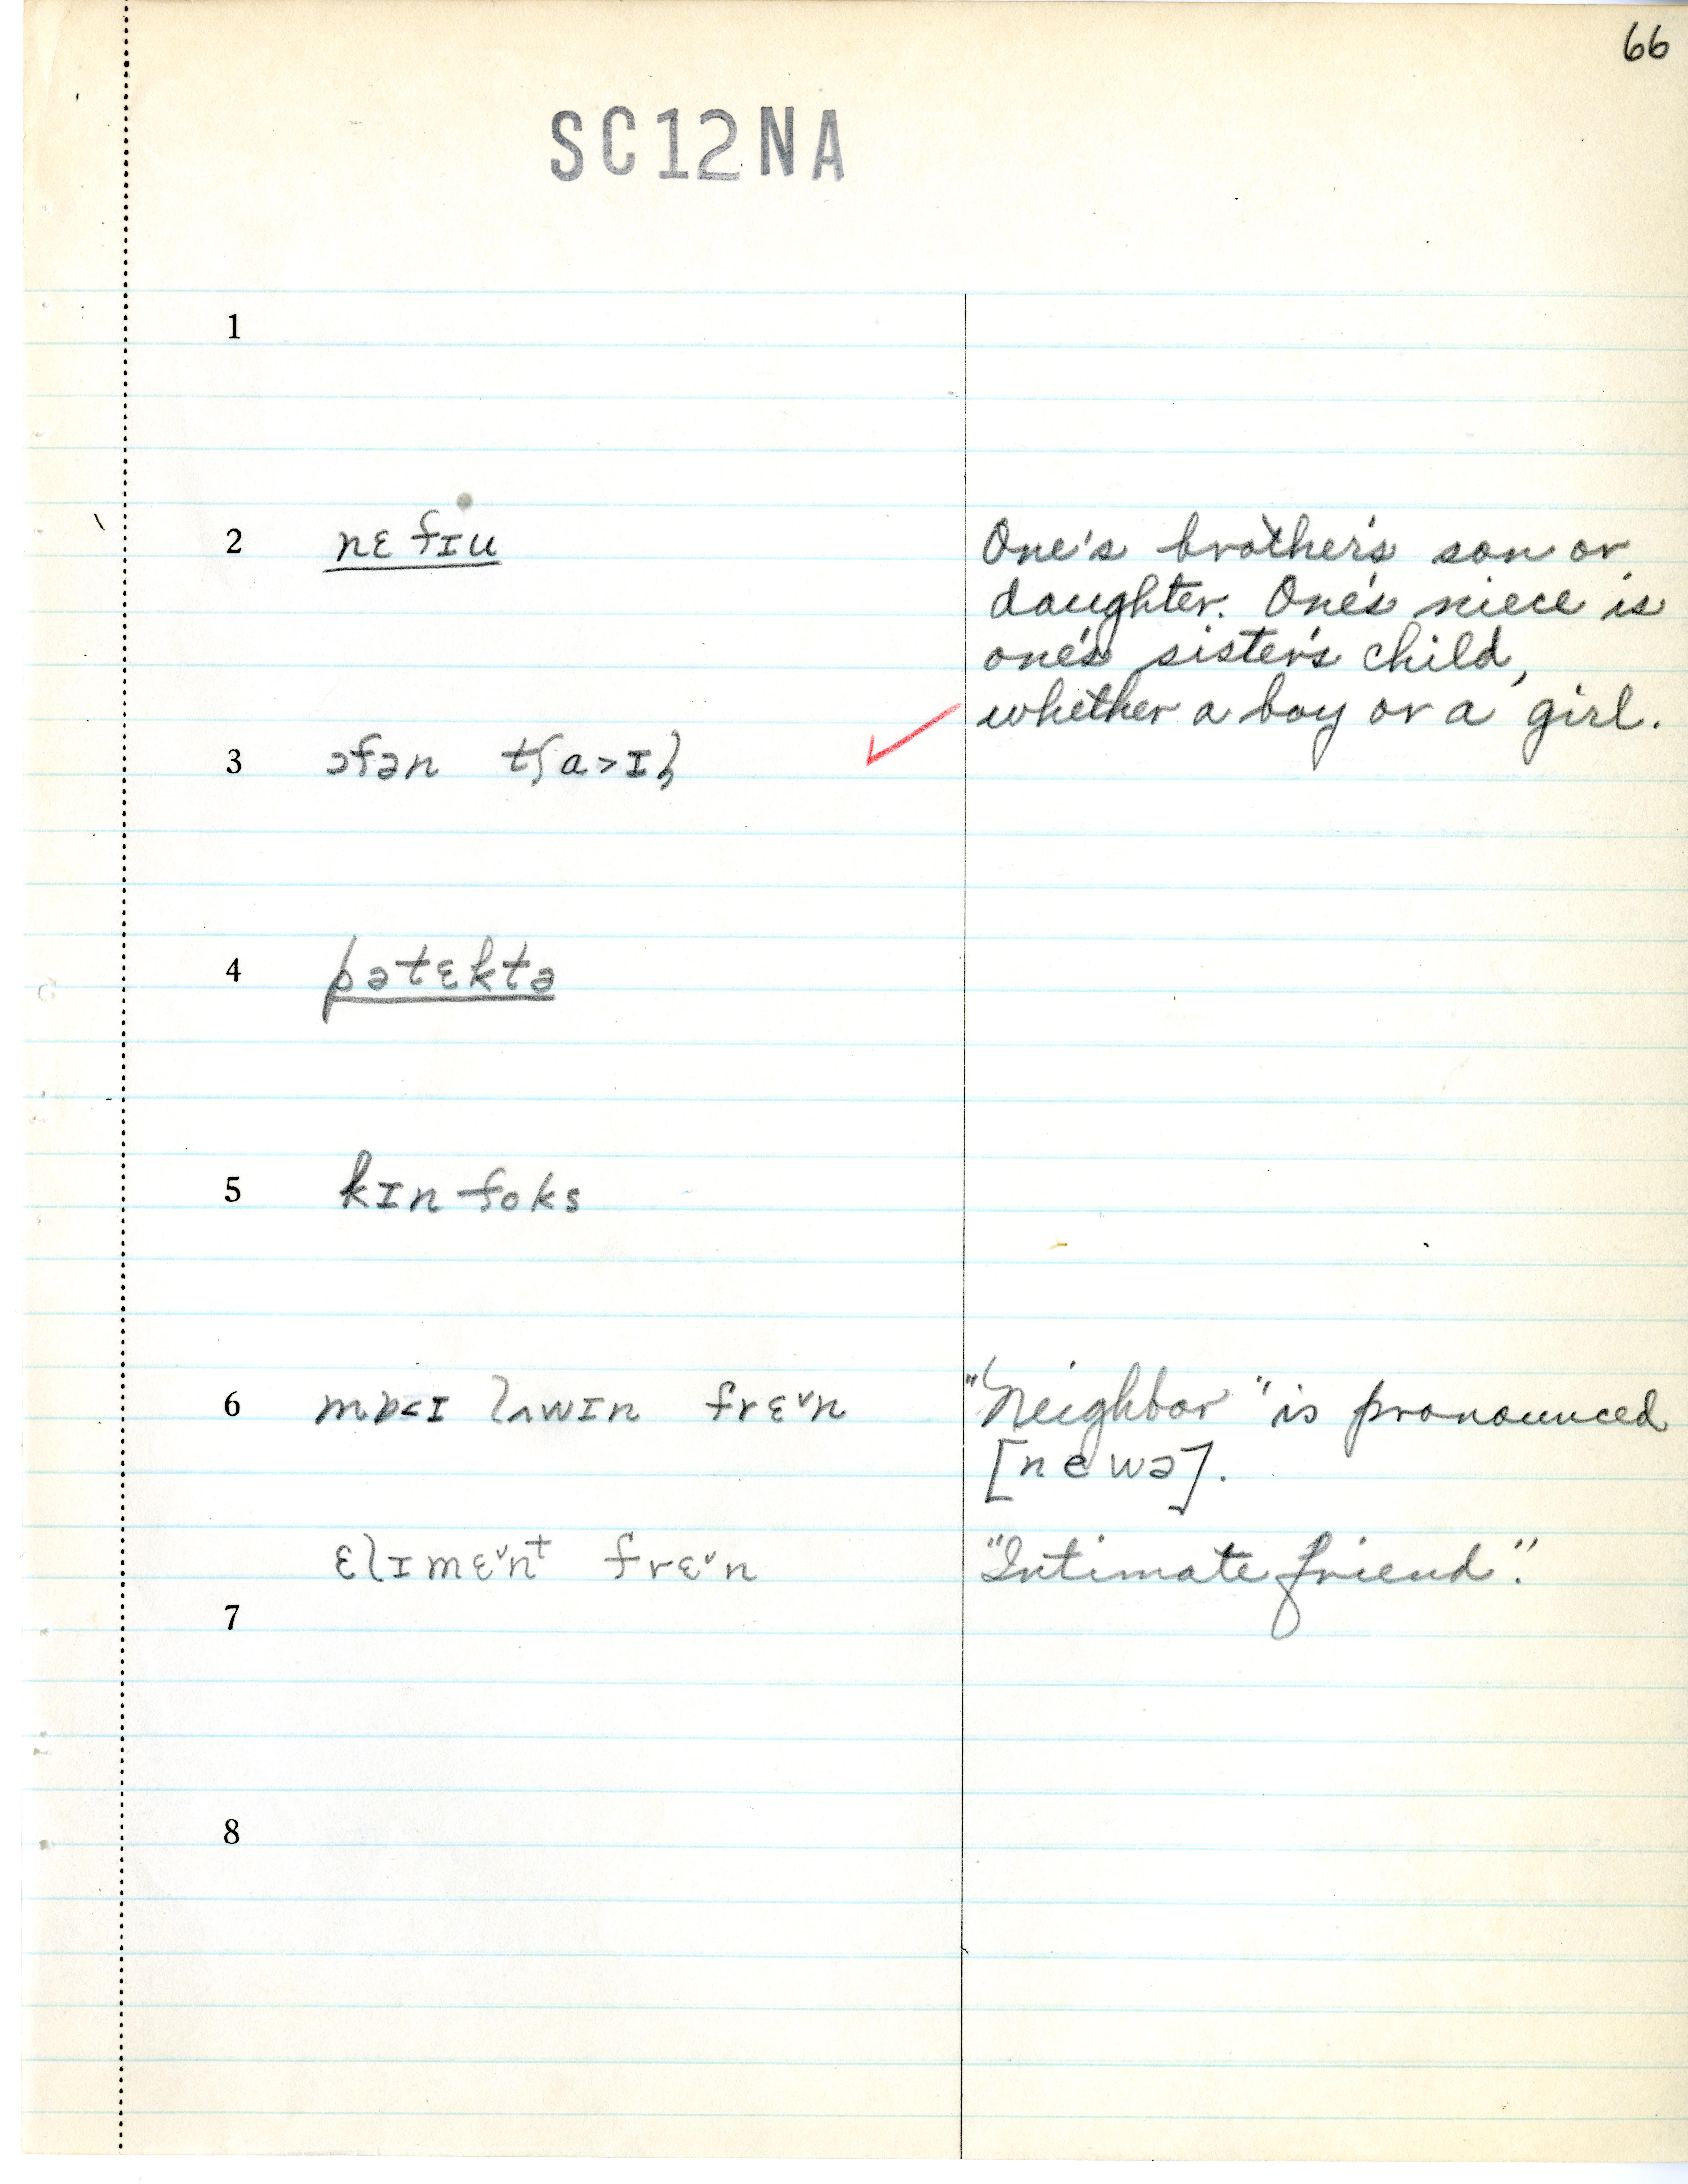 66
SC12NA
1
2 nɛfɪu One's brother's son or
daughter. One's niece is
one's sister's child,
whether a boy or a girl.
3 ɔfən tʃa>ɪl
4 pətɛktə
5 kɪn foks
6 mɒ<ɪ lʌwɪn frɛ˅n "Neighbor" is pronounced
[newə].
ɛlɪmɛ˅nt frɛ˅n "Intimate friend".
7
8